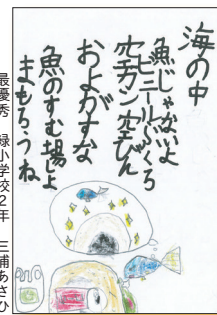 海の中
魚じゃないよ
ビニールぶくろ
空カン空びん
およがすな
魚のすむ場しょ
まもろうね
最優秀 緑小学校2年 三浦あさひ